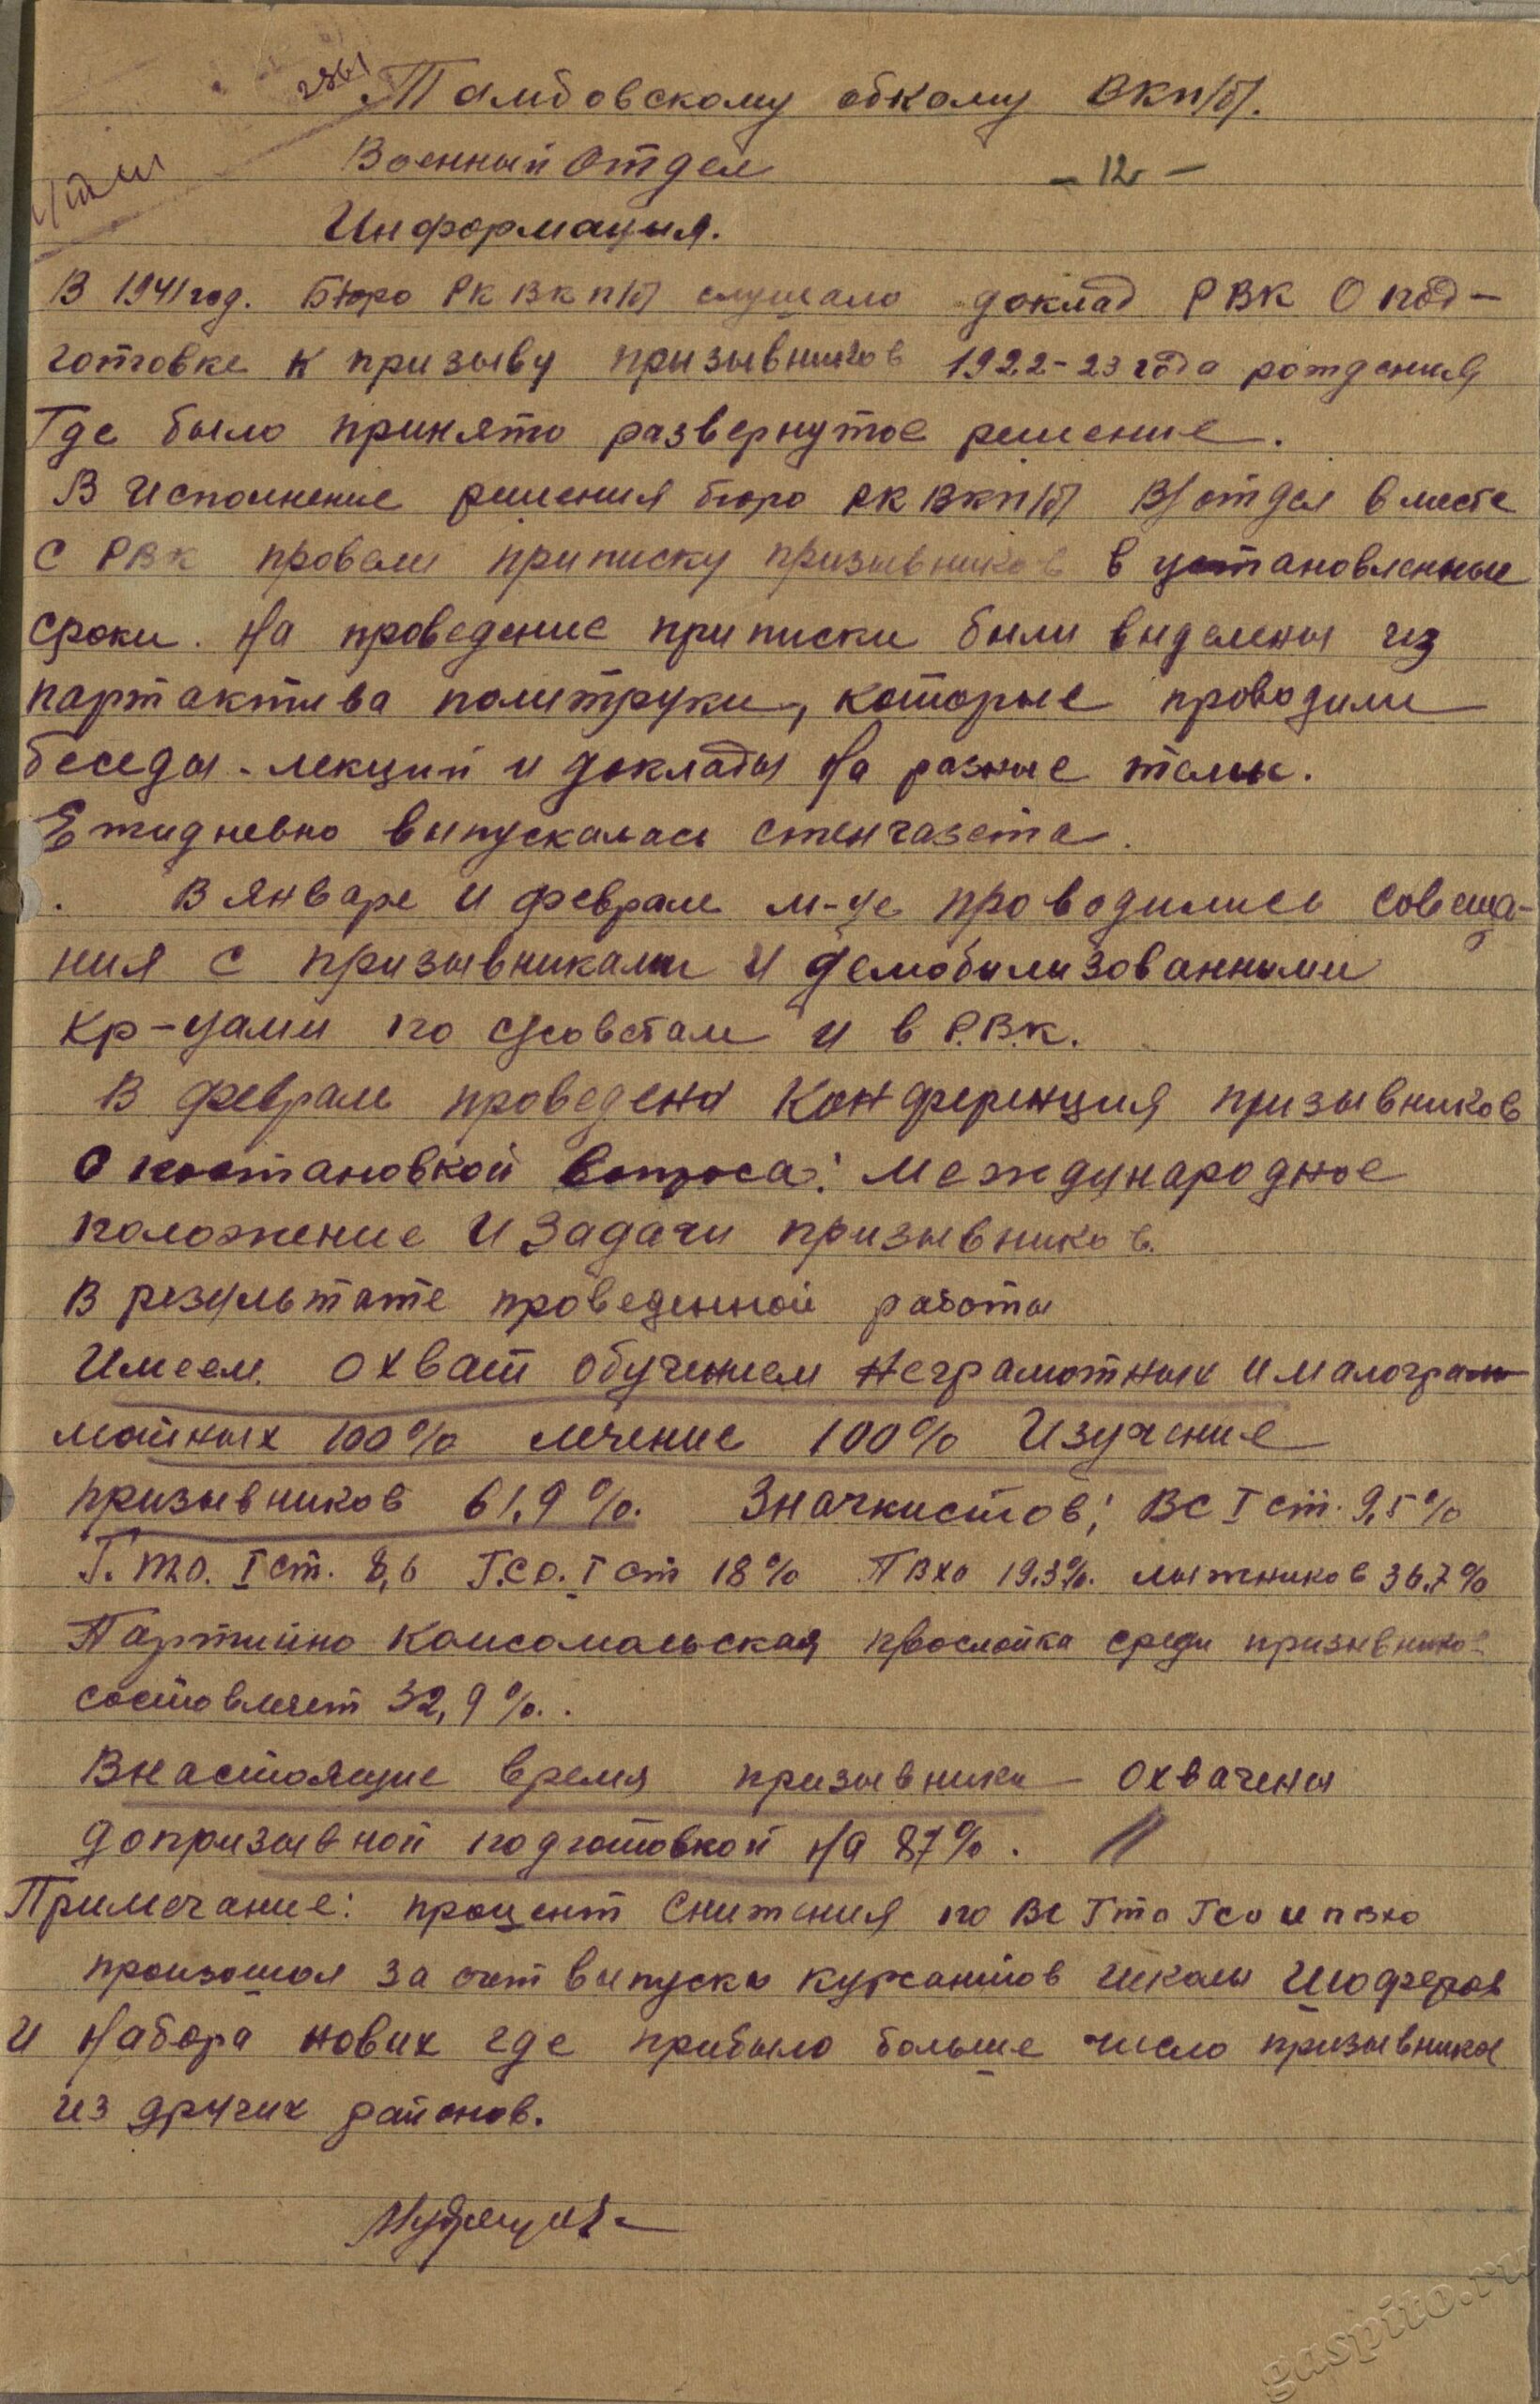 2861
Тамбовскому обкому ВКП/б/.
Военный отдел
- 12 -
Информация.
В 1941 год. Бюро РК ВКП/б/ слушало доклад РВК О под-
готовке к призыву призывников 1922-23 года рождения
Где было принято развернутое решение.
В исполнение решения бюро РК ВКП/б/ В/отдел вместе
с РВК провели приписку призывников в установленные
сроки. На проведение приписки были выделены из
партактива политруки, которые проводили
беседы - лекций и доклады На разные темы.
Ежидневно выпускалась стенгазета.
В январе и феврале м-це проводились совеща-
ния с призывниками и демобилизованными
Кр-цами по с/советам и в Р.В.К.
В феврале проведена Конференция призывников
С постановкой вопроса: Международное
положение и задачи призывников.
В результате проведенной работы
Имеем охват обучением неграмотных и малограм
мотных 100% лечение 100% Изучение
призывников 61,9%. Значкистов; ВС I ст. 9,5%
Г.Т.О. I ст. 8,6 Г.С.О. I ст 18% ПВХО 19.3%. лыжников 36.7%
Партийно Комсомольская прослойка среди призывников
состовляет 32,9%.
В настоящие время призывники охвачены
допризывной подготовкой На 87%.
Примечание: процент Снижения по ВС ГТО ГСО и ПВХО
произошол за счет выпуска курсантов школы Шоферов
и Набора новых где прибыло больше число призывников
из других районов.
gaspito.ru